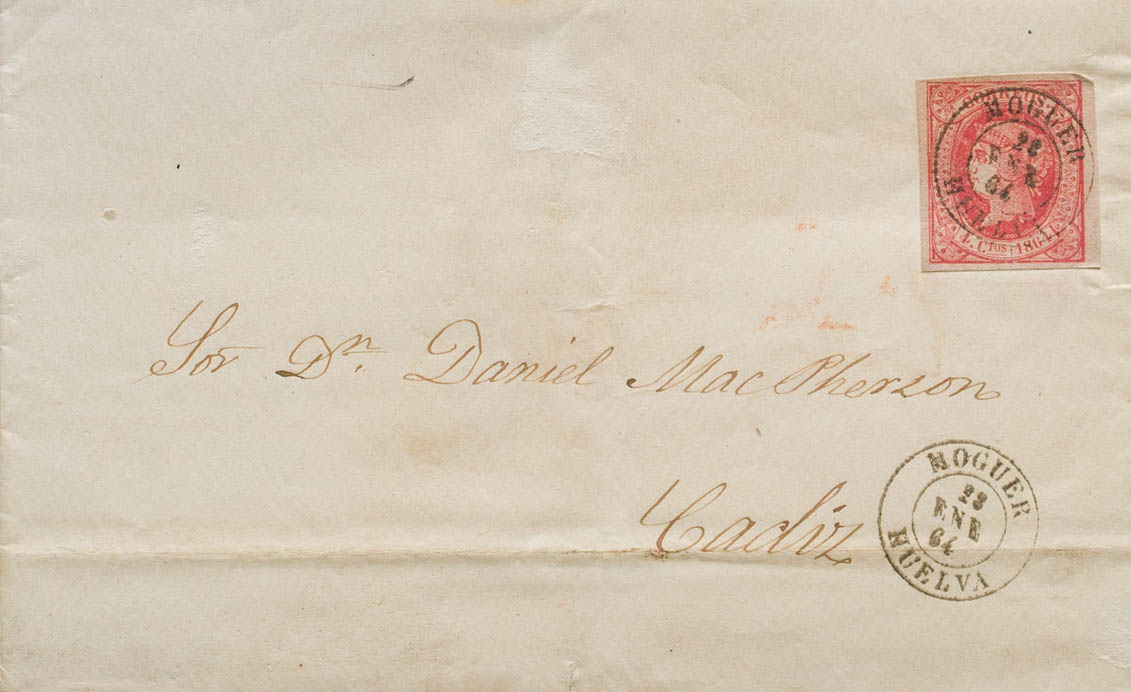 CORREOS
MOGUER
28
ENE
64
HUELVA
4 Ctos 1864
Sor Dn. Daniel MacPherson
Cadiz
MOGUER
28
ENE
64
HUELVA